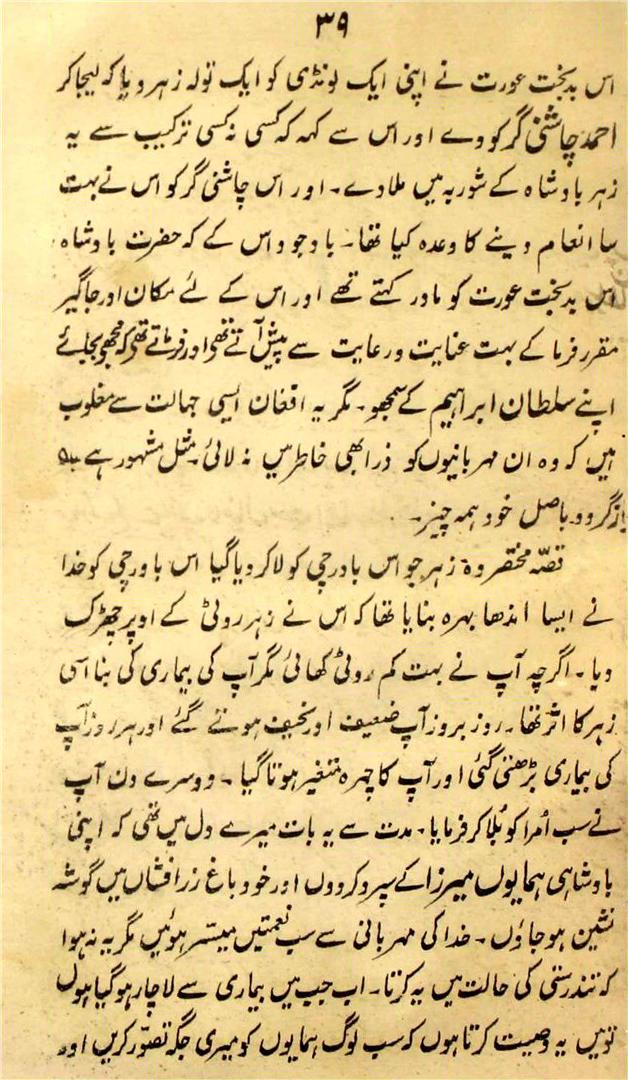 ۳۹
اس بدبخت عورت نے اپنی ایک لونڈی کو ایک تولہ زہر دیا کہ لیجا کر
احمد چاشنی گر کو دے اور اس سے کہہ کہ کسی نہ کسی ترکیب سے یہ
زہر بادشاہ کے شوربہ میں ملا دے۔ اور اس چاشنی گر کو اس نے بہت
سا انعام دینے کا وعدہ کیا تھا۔ باوجود اس کے کہ حضرت بادشاہ
اس بدبخت عورت کو مادر کہتے تھے اور اس کے لئے مکان اور جاگیر
مقرر فرما کے بہت عنایت و رعایت سے پیش آتے تھے اور فرماتے تھے کہ مجھے بجائے
اپنے سلطان ابراہیم کے سمجھو۔ مگر یہ افغان ایسی جہالت سے مغلوب
ہیں کہ وہ ان مہربانیوں کو ذرا بھی خاطر میں نہ لائی۔ مثل مشہور ہے
بازگردد باصل خود ہمہ چیز۔
قصّہ مختصر وہ زہر جو اس باورچی کو لا کر دیا گیا اس باورچی کو خدا
نے ایسا اندھا بہرہ بنایا تھا کہ اس نے زہر روٹی کے اوپر چھڑک
دیا۔ اگرچہ آپ نے بہت کم روٹی کھائی مگر آپ کی بیماری کی بنا اسی
زہر کا اثر تھا۔ روز بروز آپ ضعیف اور نحیف ہوتے گئے اور ہر روز آپ
کی بیماری بڑھتی گئی اور آپ کا چہرہ متغیر ہوتا گیا۔ دوسرے دن آپ
نے سب اُمرا کو بُلا کر فرمایا۔ مدت سے یہ بات میرے دل میں تھی کہ اپنی
بادشاہی ہمایوں میرزا کے سپرد کردوں اور خود باغ زرافشاں میں گوشہ
نشین ہو جاؤں۔ خدا کی مہربانی سے سب نعمتیں میسّر ہوئیں مگر یہ نہ ہوا
کہ تندرستی کی حالت میں یہ کرتا۔ اب جب میں بیماری سے لاچار ہو گیا ہوں
تو میں یہ وصیت کرتا ہوں کہ سب لوگ ہمایوں کو میری جگہ تصوّر کریں اور